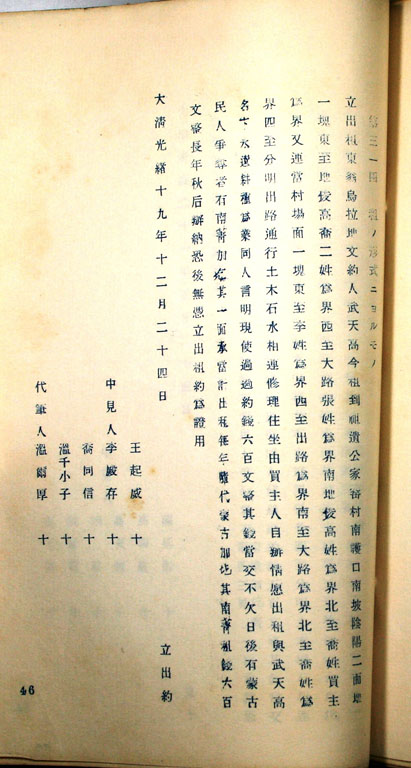 第三一圖 租ノ形式ニヨルモノ
立出租東翁烏拉地文約人武天高今租到祖遺公家窰村南護口南坡陰陽二面地
一塊東至地後高喬二姓爲界西至大路張姓爲界南地後高姓爲界北至喬姓買主
爲界又連當村場面一塊東至李姓爲界西至出路爲界南至大路爲界北至喬姓爲
界四至分明出路通行土木石水相連修理住坐由買主人自辦情愿出租與武天高
名下永遠耕種爲業同人言明現使過過約錢六百文當其錢當交不欠日後有蒙古
民人爭奪者有南菁加圪其一面承當計出租每年隨代蒙古加圪其南菁租錢六百
文當長年秋后辦納恐後無憑立出租約爲證用
大清光緒十九年十二月二十四日
立出約
王起威 十
中見人李殿存 十
喬同信 十
溫千小子 十
代筆人溫爾厚 十
46